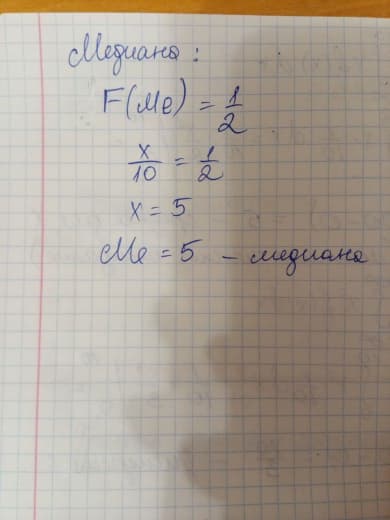 Медиана:
F(Me) = 1/2
x/10 = 1/2
x = 5
Me = 5 – медиана